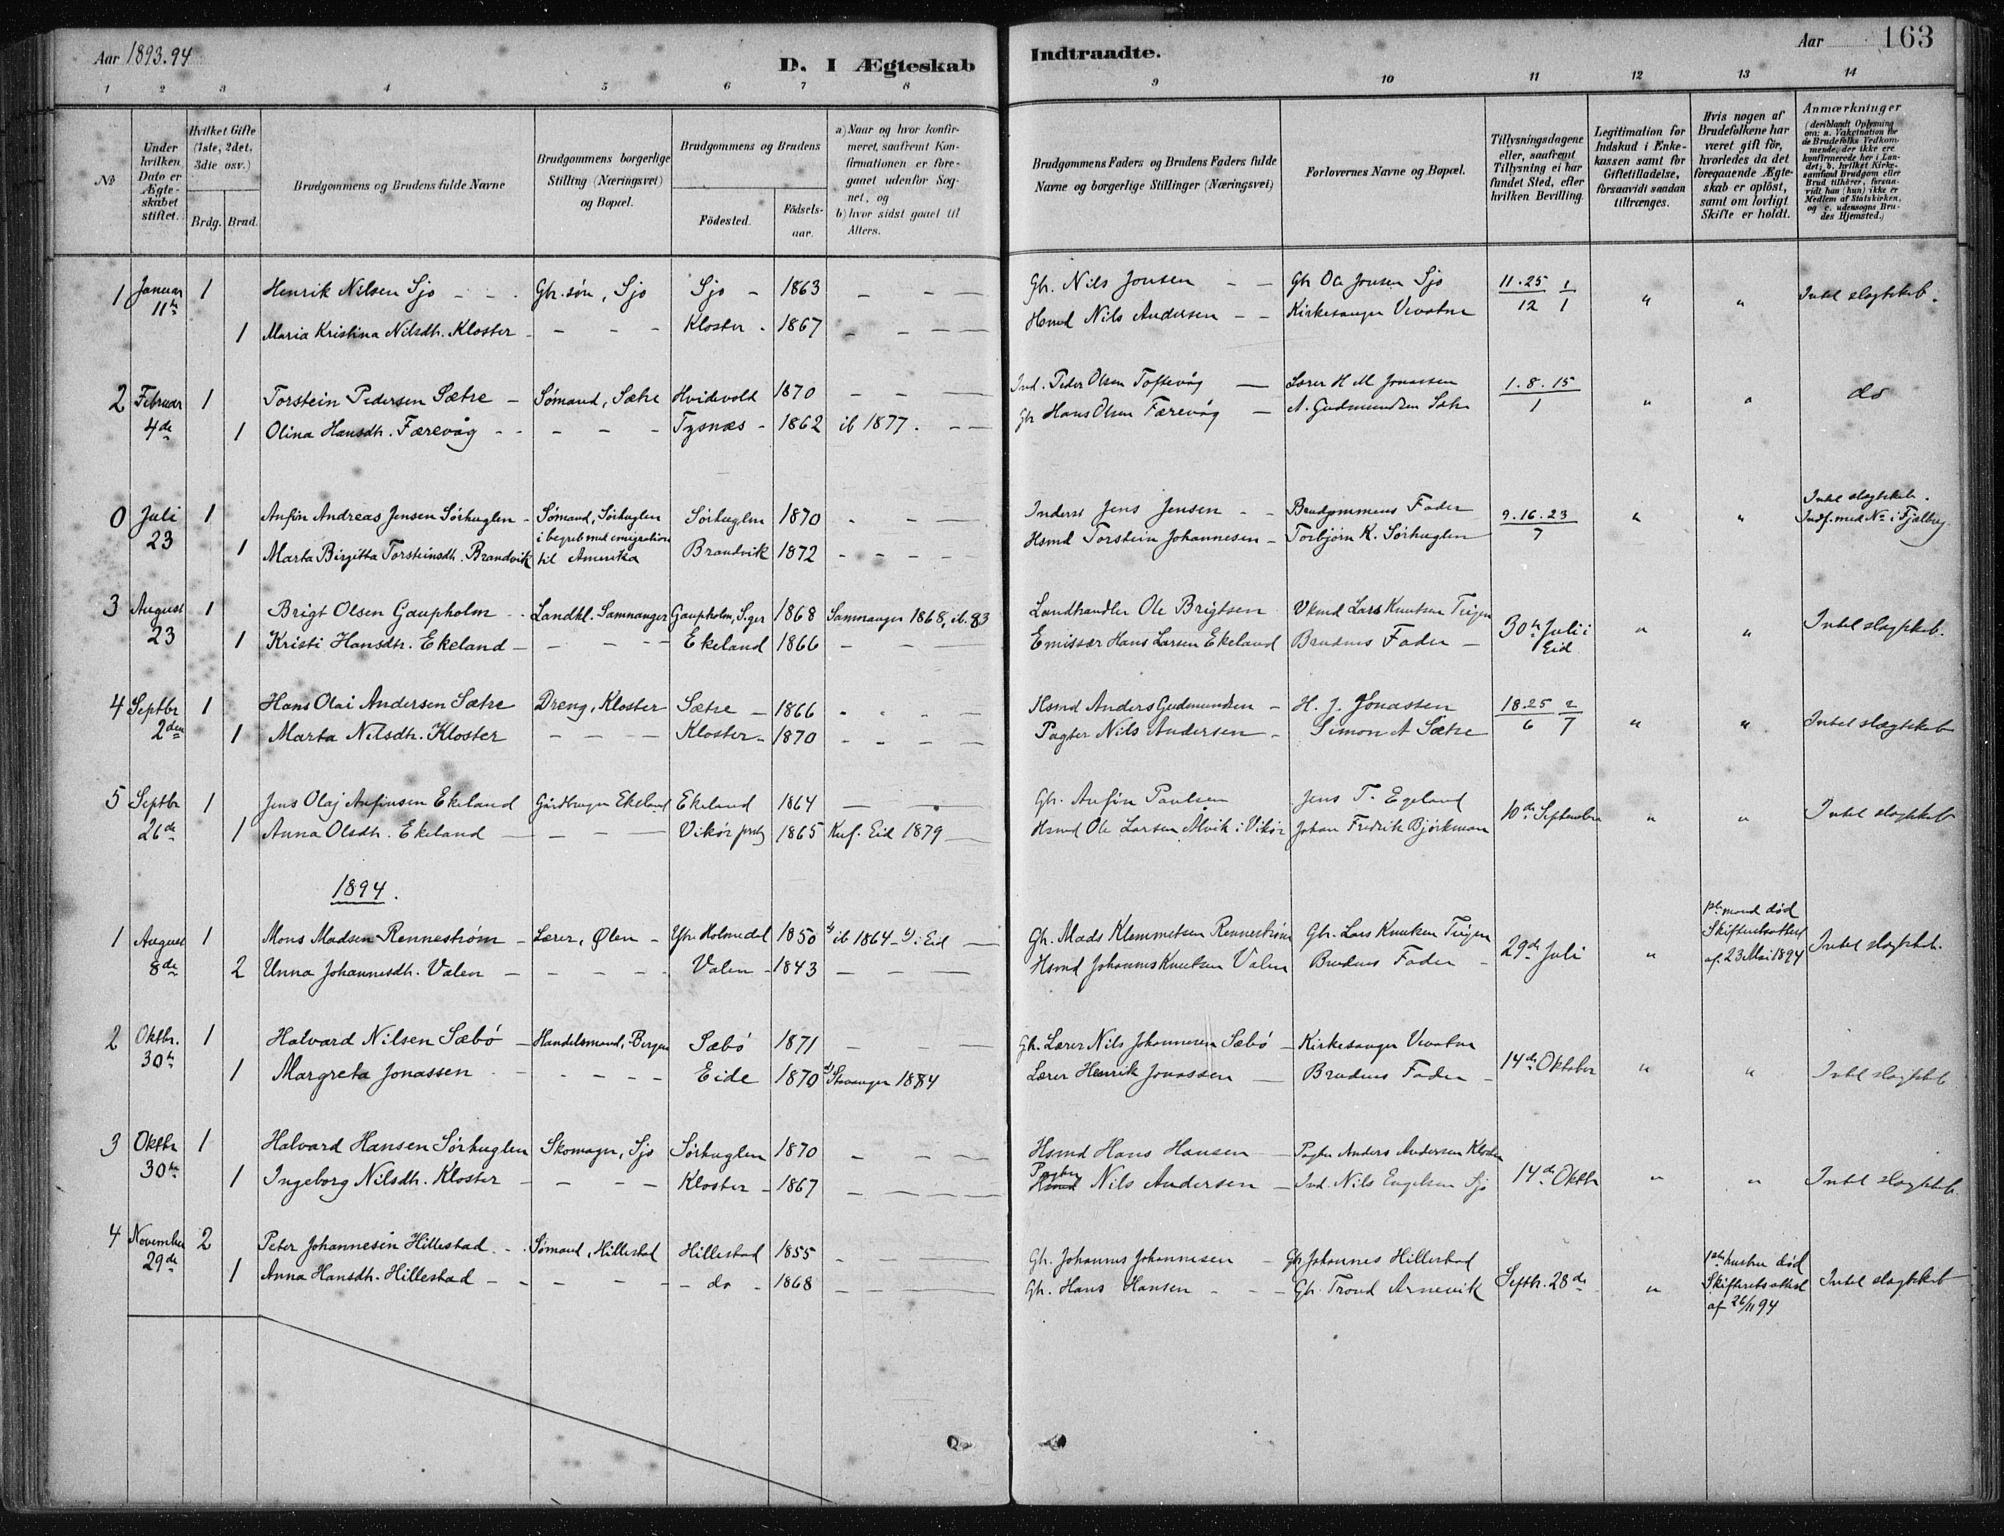 Aar 1893.94
D. I Ægteskab Indtraadte.
Aar
163
1 2 3 4 5 6 7 8 9 10 11 12 13 14
№
Under hvilken Dato er Ægteskabet stiftet.
Hvilket Gifte (1ste, 2det, 3dte osv.)
Brdg. Brud.
Brudgommens og Brudens fulde Navne
Brudgommens borgerlige Stilling (Næringsvei) og Bopæl.
Brudgommens og Brudens
Födested.
Födselsaar.
a) Naar og hvor konfirmeret, saafremt Konfirmationen er foregaaet udenfor Sognet, og
b) hvor sidst gaaet til Alters.
Brudgommens Faders og Brudens Faders fulde Navne og borgerlige Stillinger (Næringsvei)
Forlovernes Navne og Bopæl.
Tillysningsdagene eller, saafremt Tillysning ei har fundet Sted, efter hvilken Bevilling.
Legitimation for Indskud i Enkekassen samt for Giftetilladelse, forsaavidt saadan tiltrænges.
Hvis nogen af Brudefolkene har været gift för, hvorledes da det foregaaende Ægteskab er oplöst, samt om lovligt Skifte er holdt.
Anmærkninger (deriblandt Oplysning om: a. Vakcination for de Brudefolks Vedkommende, der ikke ere konfirmerede her i Landet; b. hvilket Kirkesamfund Brudgom eller Brud tilhörer, forsaavidt han (hun) ikke er Medlem af Statskirken, og c. udensogns Brudes Hjemsted.)
1 Januar 11te 1 Henrik Nilsen Sjo Gbr.søn, Sjo Sjo 1863 Gbr. Nils Jonsen Gbr Ole Jonsen Sjo 11.25/12 1/1 " " Intet slagtskab.
1 Maria Kristina Nilsdtr. Kloster Kloster 1867 Hsmd Nils Andersen Kirkesanger Vevatne
2 Februar 4de 1 Torstein Pedersen Sætre Sømand, Sætre Hvidevold 1870 Ind. Peder Olsen Toftevåg Lærer H M Jonassen 1.8.15/1 " " do
1 Olina Hansdtr. Færevåg Tysnæs 1862 ib 1877. Gbr Hans Olsen Færevåg A. Gudmundsen Sætre
0 Juli 23 1 Anfin Andreas Jensen Sørhuglen Sømand, Sørhuglen i begreb med emigration til Amerika Sørhuglen 1870 Inderst Jens Jensen Brudgommens Fader 9.16.23/7 " " Intet slagtskab. Indf. med № i Fjælberg
1 Marta Birgitta Torsteinsdtr. Brandvik Brandvik 1872 Hsmd Torstein Johannesen Torbjörn K. Sörhuglen
3 August 23 1 Brigt Olsen Gaupholm Landhl. Samnanger Gaupholm, S.ger 1868 Samnanger 1868, ib. 83 Landhandler Ole Brigtsen Lars Knutsen Teigen 30te Juli i Eid " " Intet slagtskab.
1 Kristi Hansdtr. Ekeland Ekeland 1866 Emissær Hans Larsen Ekeland Brudens Fader
4 Septbr 2den 1 Hans Olai Andersen Sætre Dreng, Kloster Sætre 1866 Hsmd Anders Gudmundsen H. J. Jonassen 18.25/6 2/7 " " Intet slagtskab
1 Marta Nilsdtr. Kloster Kloster 1870 Pagter Nils Andersen Simon A Sætre
5 Septbr 26de 1 Jens Olaj Anfinsen Ekeland Gårdbruger Ekeland Ekeland 1864 Gbr. Anfin Paulsen Jens T. Egeland 10de September " " Intet slagtskab
1 Anna Olsdtr. Ekeland Vikör 1865 Knf. Eid 1879 Hsmd Ole Larsen Alvik i Vikör Johan Fredrik Bjørkman
1894.
1 August 8de 1 Mons Madsen Rennestrøm Lærer, Ølen Holmedal 1850 ib 1864 i Eid Gbr. Mads Klemmetsen Rennestrøm Gbr. Lars Knutsen Teigen 29de Juli " 1ste mand død Skifteretsattest af. 23 Mai 1894 Intet slagtskab.
2 Unna Johannesdtr. Valen Valen 1843 Hsmd Johannes Knutsen Valen Brudens Fader
2 Oktbr. 30te 1 Halvard Nilsen Sæbö Handelsmand, Bergen Sæbö 1871 Gbr. Lærer Nils Johannesen Sæbö Kirkesanger Vevatne 14de Oktober " " Intet slagtskab
1 Margreta Jonassen Eide 1870 Stavanger 1884 Lærer Henrik Jonassen Brudens Fader
3 Oktbr 30te 1 Halvard Hansen Sørhuglen Skomager, Sjo Sörhuglen 1870 Hsmd Hans Hansen Pagter Anders Andersen Kloster 14de Oktbr " " Intet slagtskab.
1 Ingeborg Nilsdtr. Kloster Kloster 1867 Pagter Hsmd Nils Andersen Ind. Nils Engelsen Sjo
4 November 29de 2 Peter Johannesen Hillestad Sømand, Hillestad Hillestad 1855 Gbr. Johannes Johannesen Gbr Johannes Hillestad Septbr. 28de " 1ste hustru død Skifteretsattest af 26/11 94 Intet slagtskab
1 Anna Hansdtr. Hillestad do 1868 Gbr. Hans Hansen Gbr. Trond Arnevik